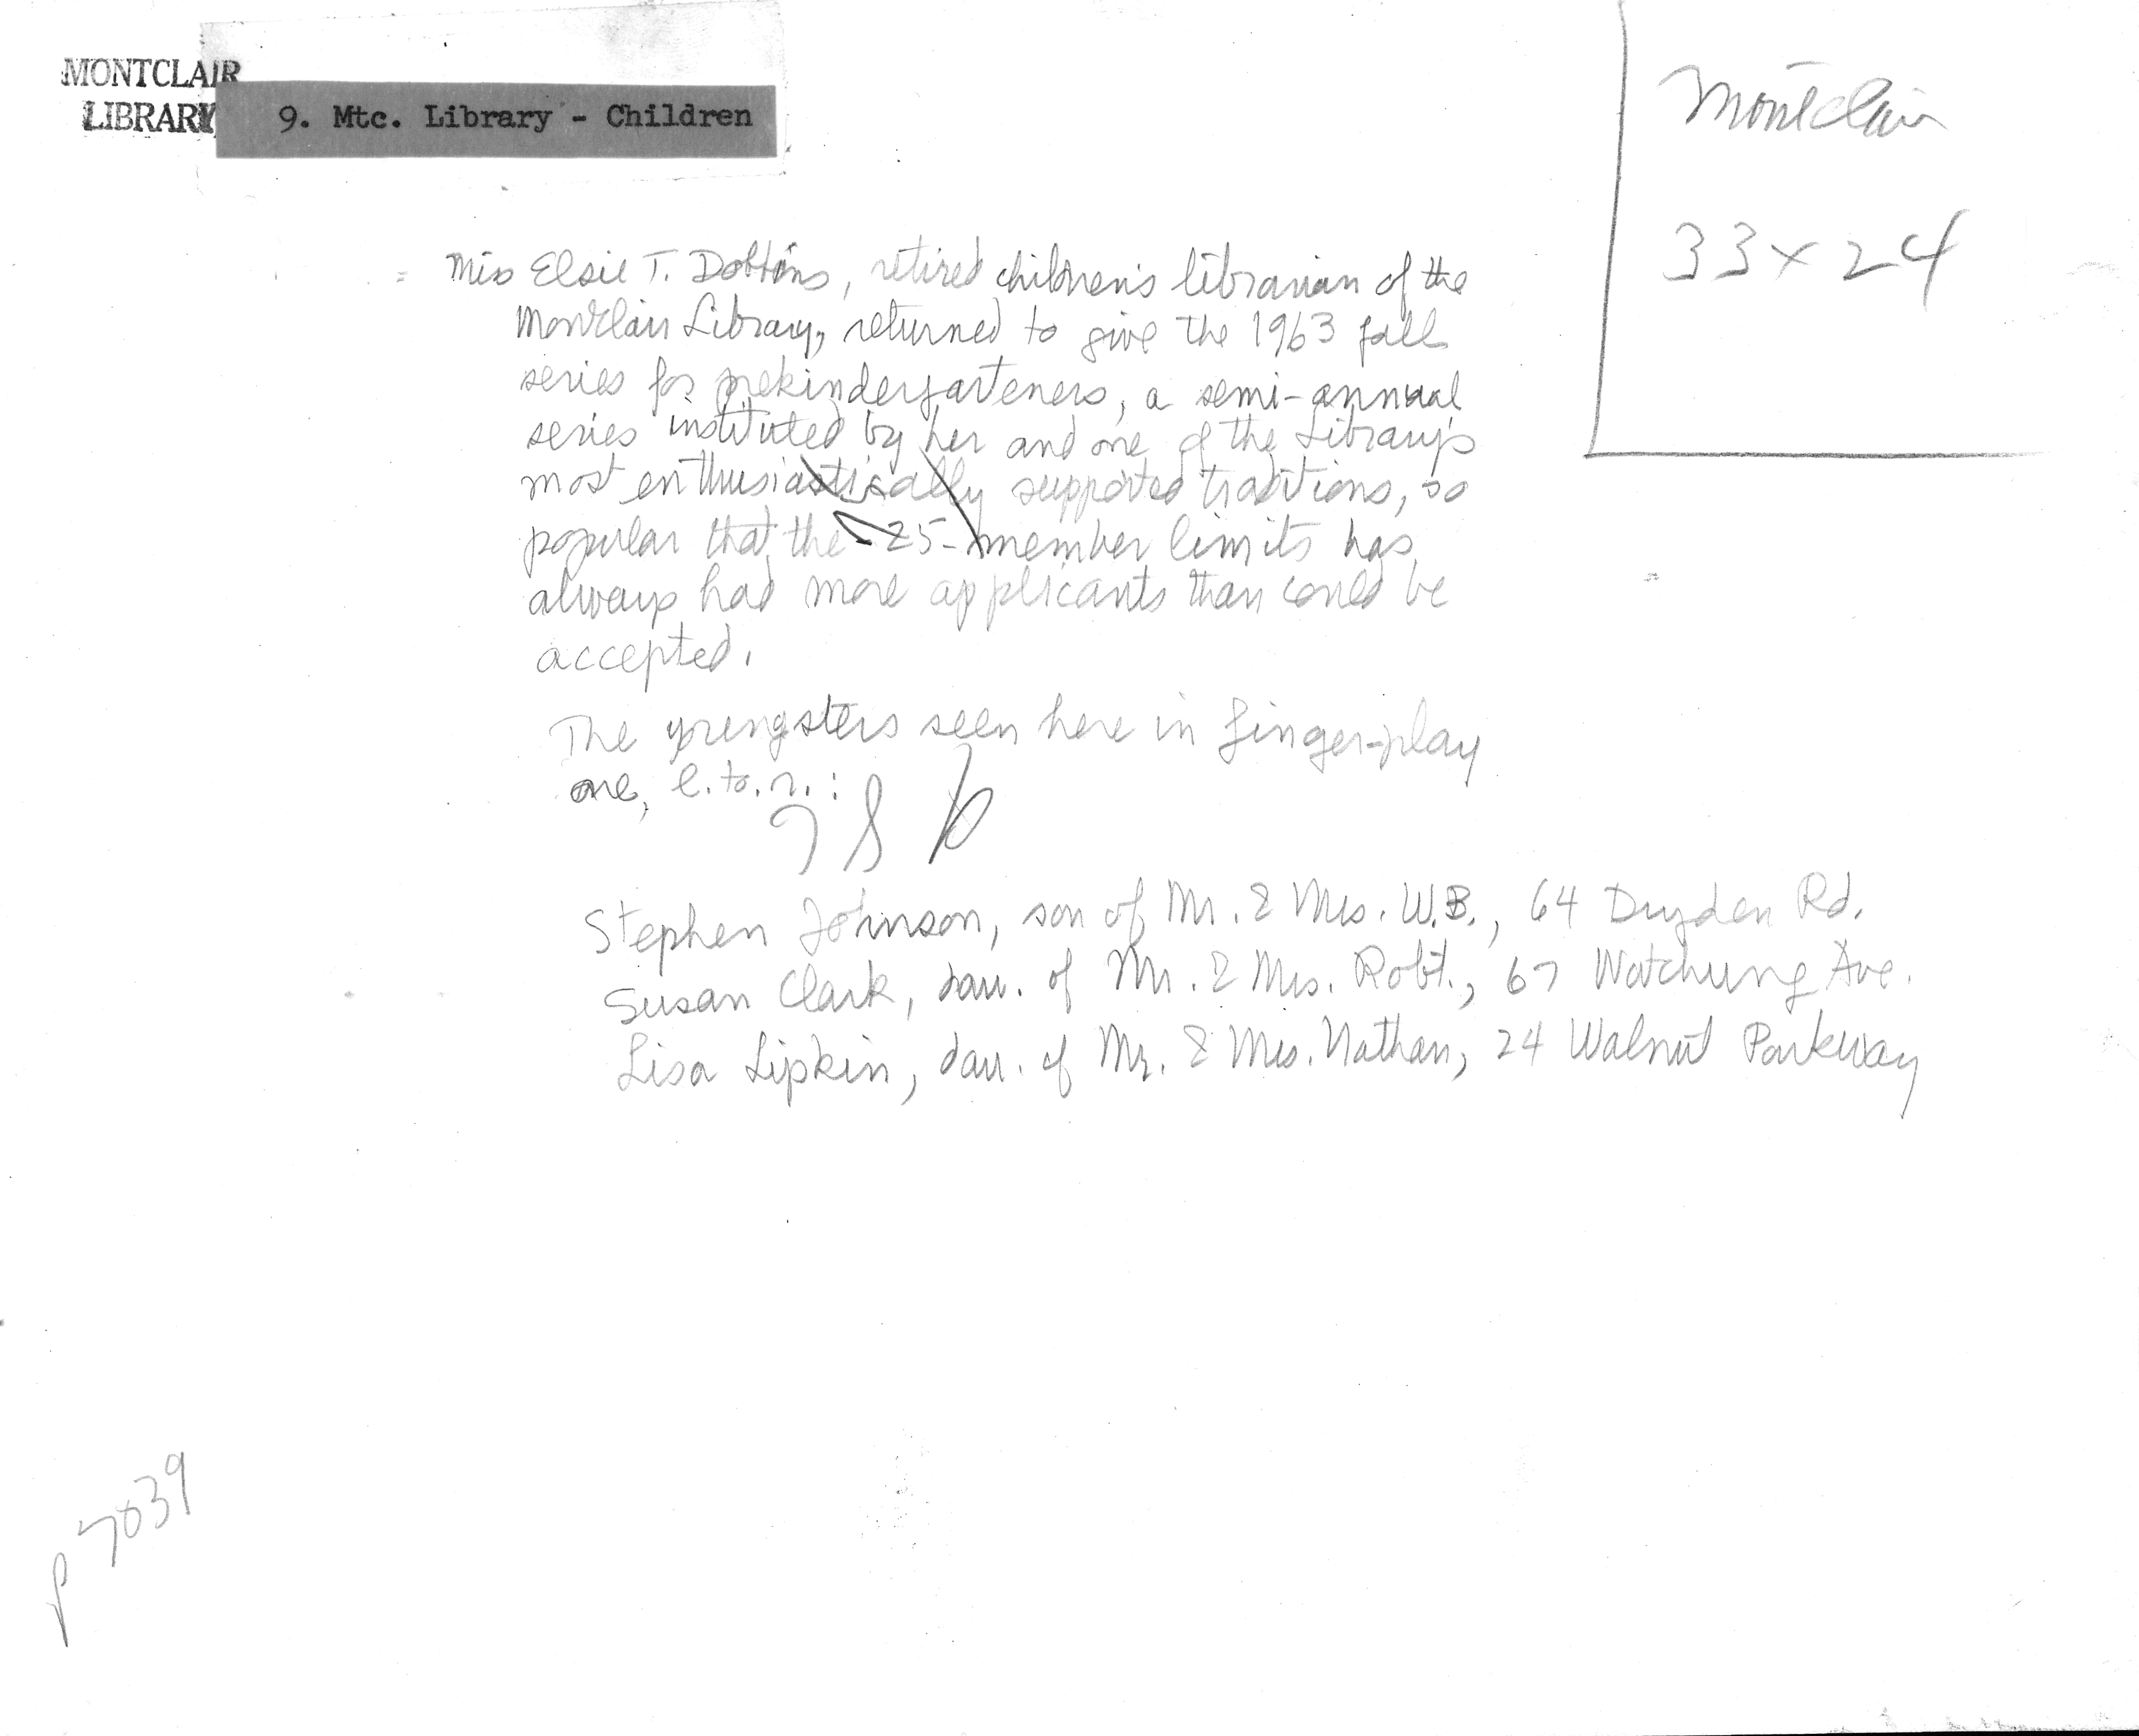 MONTCLAIR
LIBRARY
9. Mtc. Library - Children
Montclair
33 x 24
Miss Elsie T. Dobbins, retired children's librarian of the
Montclair Library, returned to give the 1963 fall
series for prekindergarteners, a semi-annual
series instituted by her and one of the Library's
most enthusiastically supported traditions, so
popular that the 25-member limits has
always had more applicants than could be
accepted.
The youngsters seen here in finger-play
are, l. to. r. :
Stephen Johnson, son of Mr. & Mrs. W.B., 64 Dryden Rd.
Susan Clark, dau. of Mr. & Mrs. Robt., 67 Watchung Ave.
Lisa Lipkin, dau. of Mr. & Mrs. Nathan, 24 Walnut Parkway
P 7039